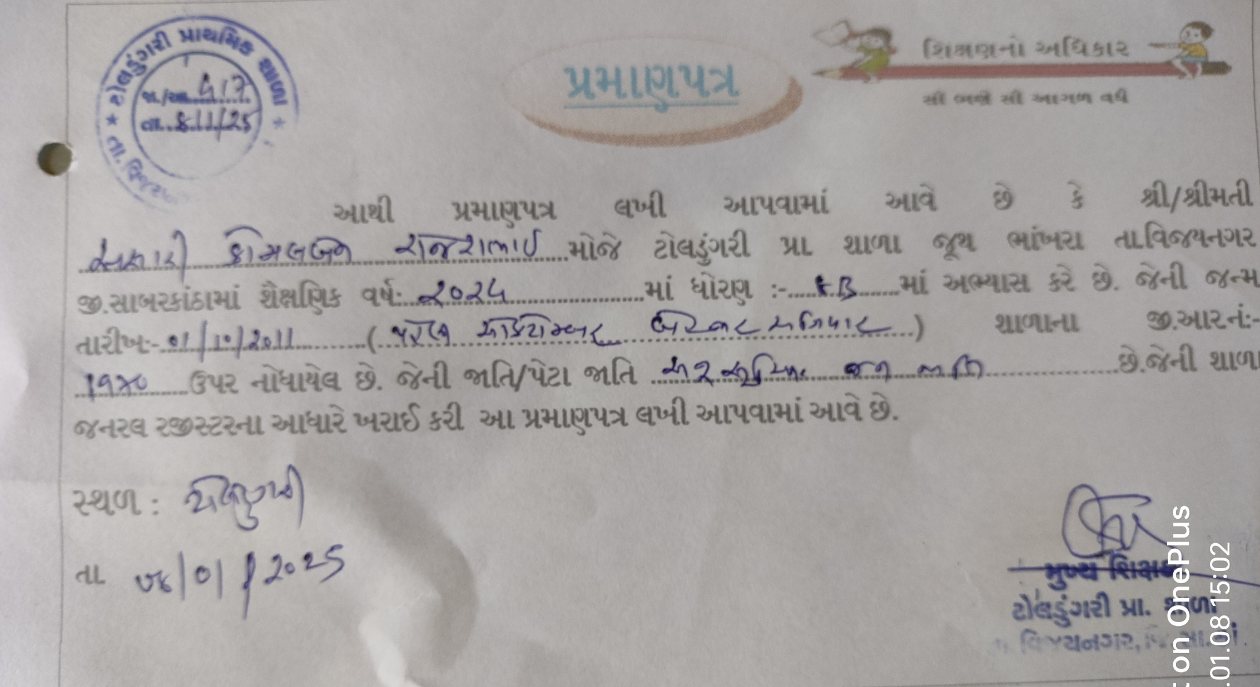 ટોલડુંગરી પ્રાથમિક શાળા
જા./આ. 417
તા. 8/1/25
તા. વિજય
પ્રમાણપત્ર
શિક્ષણનો અધિકાર
સૌ ભણે સૌ આગળ વધે
આથી પ્રમાણપત્ર લખી આપવામાં આવે છે કે શ્રી/શ્રીમતી
કોમલબેન રાજેશભાઈ મોજે ટોલડુંગરી પ્રા શાળા જૂથ ભાંખરા તા.વિજયનગર
જી.સાબરકાંઠામાં શૈક્ષણિક વર્ષ:- ૨૦૨૫ માં ધોરણ :- 8B માં અભ્યાસ કરે છે. જેની જન્મ
તારીખ:- 01/10/2011 ( ) શાળાના જી.આરનં:-
૧૧૪૦ ઉપર નોધાયેલ છે. જેની જાતિ/પેટા જાતિ છે.જેની શાળા
જનરલ રજીસ્ટરના આધારે ખરાઈ કરી આ પ્રમાણપત્ર લખી આપવામાં આવે છે.
સ્થળ : ટોલડુંગરી
તા ૦૮/૦1/2025
મુખ્ય શિક્ષક
ટોલડુંગરી પ્રા. શાળા
વિજયનગર,
t on OnePlus
.01.08 15:02